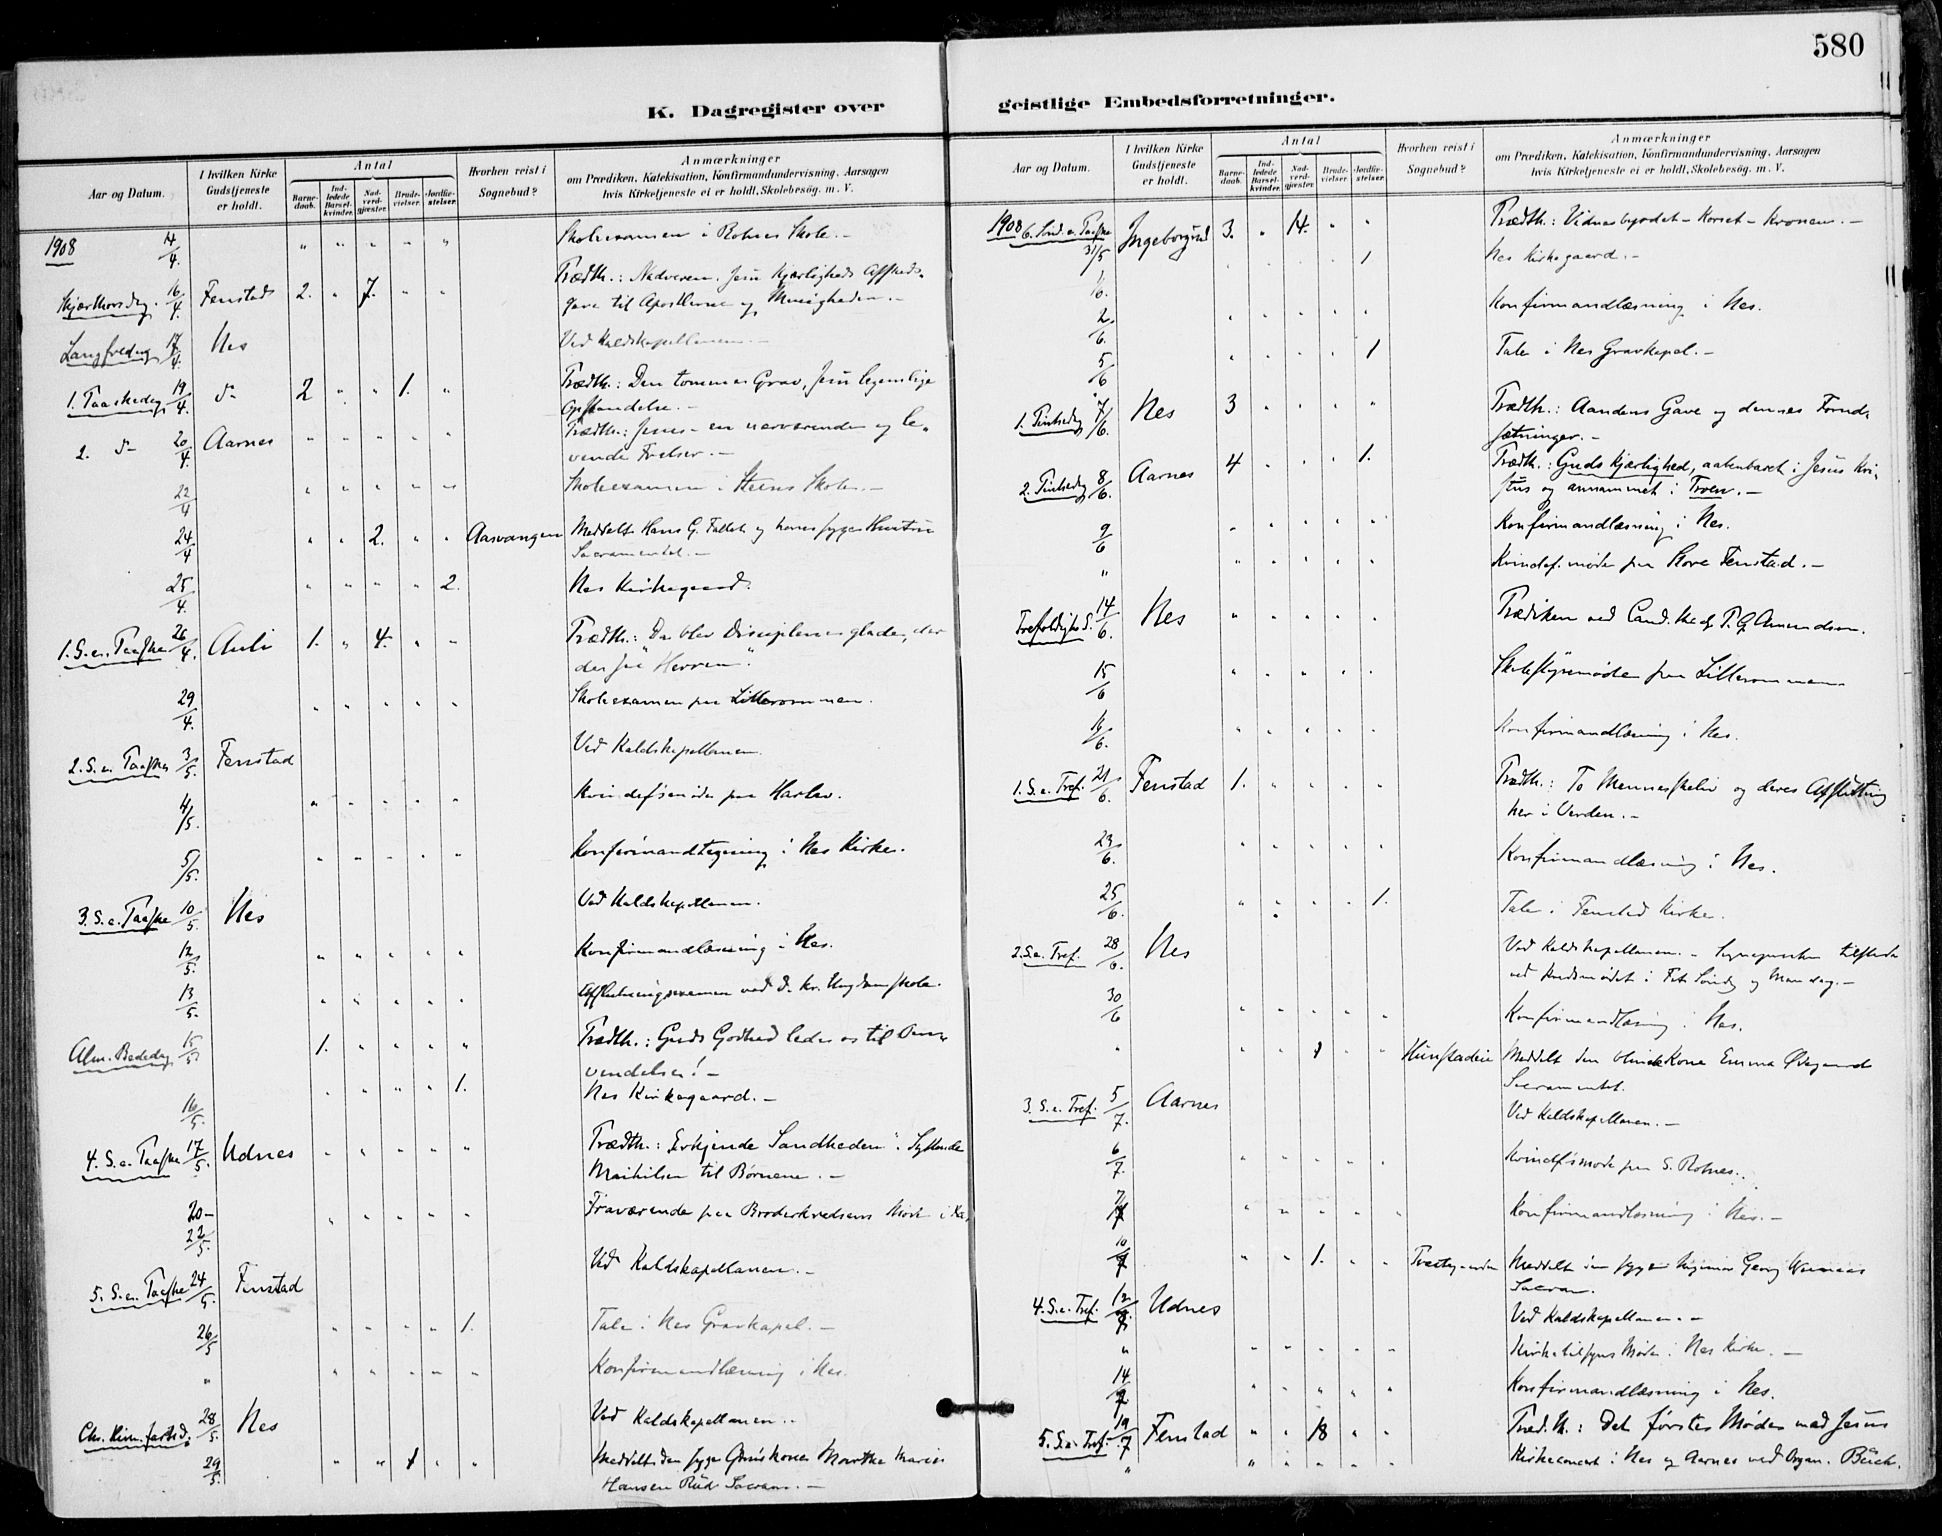 580
K. Dagregister over geistlige Embedsforretninger.
Aar og Datum.
I hvilken Kirke Gudstjeneste er holdt.
Antal
Barne-daab.
Ind-ledede Barsel-kvinder.
Nad-verd-gjæster.
Brude-vielser.
Jordfæ-stelser.
Hvorhen reist i Sognebud?
Anmærkninger
om Prædiken, Katekisation, Konfirmandundervisning, Aarsagen
hvis Kirketjeneste ei er holdt, Skolebesøg. m. V.
1908 14/4. " " " " " Skoleexamen i Rohnes Skole. -
Skjærthorsdag. 16/4. Fenstad 2. " 7. " " Prædth.: Nadveren, Jesu Kjærligheds Afskeds-
gave til Apostlerne og Menigheden. -
Langfredag 17/4. Nes Ved Kaldskapellanen. -
1. Paaskedag 19/4. do 2 " " 1. " Prædth.: Den tomme Grav, Jesu legemlige
Opstandelse. -
2. do 20/4. Aarnes " " " " " Prædth.: Jesus - en nærværende og le-
vende Frelser. -
22/4 " " " " " Skoleexamen i Steens Skole. -
24/4 " " 2. " " Aasvangen Meddelt Hans G. og hans syge Hustru
Sacramentet. -
25/4. " " " " 2. Nes Kirkegaard.
1. S. e. Paaske 26/4. Auli 1. " 4. " " Prædth.: "Da blev Disciplene glade, der
de saa Herren".
29/4. " " " " " Skoleexamen paa Lillerommen.
2. S. e. Paaske 3/5. Fenstad Ved Kaldskapellanen.
4/5. " " " " " Kvindefsmøde paa Harlev.
5/5. " " " " " Konfirmandtegning i Nes Kirke.
3. S. e. Paaske 10/5. Nes Ved Kaldskapellanen.
12/5. " " " " " Konfirmandlæsning i Nes.
13/5. " " " " " Afslutningsexamen ved d. kr. Ungdomsskole.
Alm. Bededag 15/5. 1. " " " " Prædth.: Guds Godhed leder os til Om-
vendelse! -
16/5. " " " " 1. Nes Kirkegaard. -
4. S. e. Paaske 17/5. Udnes " " " " " Prædth.: "Erkjende Sandheden".
til Børnene. -
20-22/5. " " " " " Fraværende paa Broderkredsens Møde i
5. S. e. Paaske 24/5. Fenstad Ved Kaldskapellanen. -
26/5 " " " " 1. Tale i Nes Gravkapel. -
" " " " " " Konfirmandlæsning i Nes.
Chr. Himmelfartsd. 28/5. Nes Ved Kaldskapellanen.
29/5. " " 1 " " Meddelt den syge Marthe Marie
Hansen Rud Sacram. -
Aar og Datum.
I hvilken Kirke Gudstjeneste er holdt.
Antal
Barne-daab.
Ind-ledede Barsel-kvinder.
Nad-verd-gjæster.
Brude-vielser.
Jordfæ-stelser.
Hvorhen reist i Sognebud?
Anmærkninger
om Prædiken, Katekisation, Konfirmandundervisning, Aarsagen
hvis Kirketjeneste ei er holdt, Skolebesøg. m. V.
1908 6. Sønd. e. Paaske 31/5 Ingeborgrud 3. " 14. " " Prædth.: Vidnesbyrdet - Korset - Kronen. -
1/6. " " " " 1 Nes Kirkegaard. -
2/6. " " " " " Konfirmandlæsning i Nes.
5/6 " " " " 1 Tale i Nes Gravkapel. -
1. Pintsedag 7/6. Nes 3 " " " " Prædth.: Aandens Gave og dennes Forud-
sætninger. -
2. Pintsedag 8/6. Aarnes 4 " " " 1. Prædth.: Guds Kjærlighed, aabenbaret i Jesus Kri-
stus og annammet i Troen. -
9/6 " " " " " Konfirmandlæsning i Nes.
" " " " " " Kvindef. møde paa Store Fenstad. -
Trefoldighs. S. 14/6. Nes " " " " " Prædiken ved Cand. theol. P. G. Amundsen.
15/6 " " " " " Skolestyremøde paa Lillerommen
16/6. " " " " " Konfirmandlæsning i Nes.
1. S. e. Tref. 21/6. Fenstad 1. " " " " Prædth.: To Menneskeliv og deres Afslutning
her i Verden. -
23/6. " " " " " Konfirmandlæsning i Nes.
25/6. " " " " 1. Tale i Fenstad Kirke.
2. S. e. Tref. 28/6. Nes Ved Kaldskapellanen. - Sognepresten tilstede
ved Kredsmødet i Fet Søndag og Mandag. -
30/6 " " " " " Konfirmandlæsning i Nes.
" " " 1 " " Hunstadeie Meddelt den blinde Kone Emma Øvegaard
Sacramentet.
3. S. e. Tref. 5/7. Aarnes Ved Kaldskapellanen. -
6/7. " " " " " Kvindefsmøde paa S. Rohnes.
7/7 " " " " " Konfirmandlæsning i Nes. -
10/7 " " 1. " " Meddelt den syge Georg
Sacram.
4. S. e. Tref. 12/7 Udnes Ved Kaldskapellanen. -
" " " " " " Kirketilsyns Møde i Nes Kirke. -
14/7 " " " " " Konfirmandlæsning i Nes.
5. S. e. Tref. 19/7 Fenstad " " 18 " " Præd. th.: Det første Møde med Jesus
" " " " " " Kirkeconcert i Nes og Aarnes ved Organ. Büch.